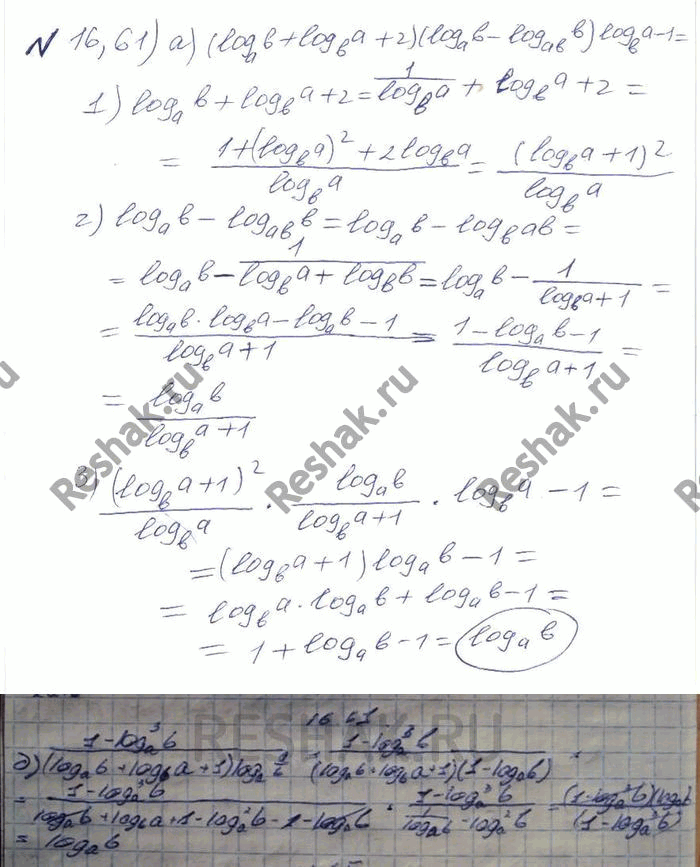 N 16,61) a) (log_a b + log_b a + 2)(log_a b - log_ab b) log_b a - 1 =
1) log_a b + log_b a + 2 = 1/log_b a + log_b a + 2 =
= (1 + (log_b a)^2 + 2 log_b a)/(log_b a) = (log_b a + 1)^2/(log_b a)
2) log_a b - log_ab b = log_a b - log_b ab =
= log_a b - 1/(log_b a + log_b b) = log_a b - 1/(log_b a + 1) =
= (log_a b · log_b a - log_a b - 1)/(log_b a + 1) = (1 - log_a b - 1)/(log_b a + 1) =
= (log_a b)/(log_b a + 1)
Reshak.ru
Reshak.ru
Reshak.ru
3) (log_b a + 1)^2/(log_b a) · (log_a b)/(log_b a + 1) · log_b a - 1 =
= (log_b a + 1) log_a b - 1 =
= log_b a · log_a b + log_a b - 1 =
= 1 + log_a b - 1 = log_a b
RESHAK.RU
16.61
(1 - log_a^3 b)/((log_a b + log_b a + 1) log_a a/b) (1 - log_a^3 b)/((log_a b + log_b a + 1)(1 - log_a b)) =
= (1 - log_a^3 b)/(log_a b + log_b a + 1 - log_a^2 b - 1 - log_a b) · (1 - log_a^3 b)/(1/log_a b - log_a^2 b) = (1 - log_a^3 b) log_a b/(1 - log_a^3 b)
= log_a b